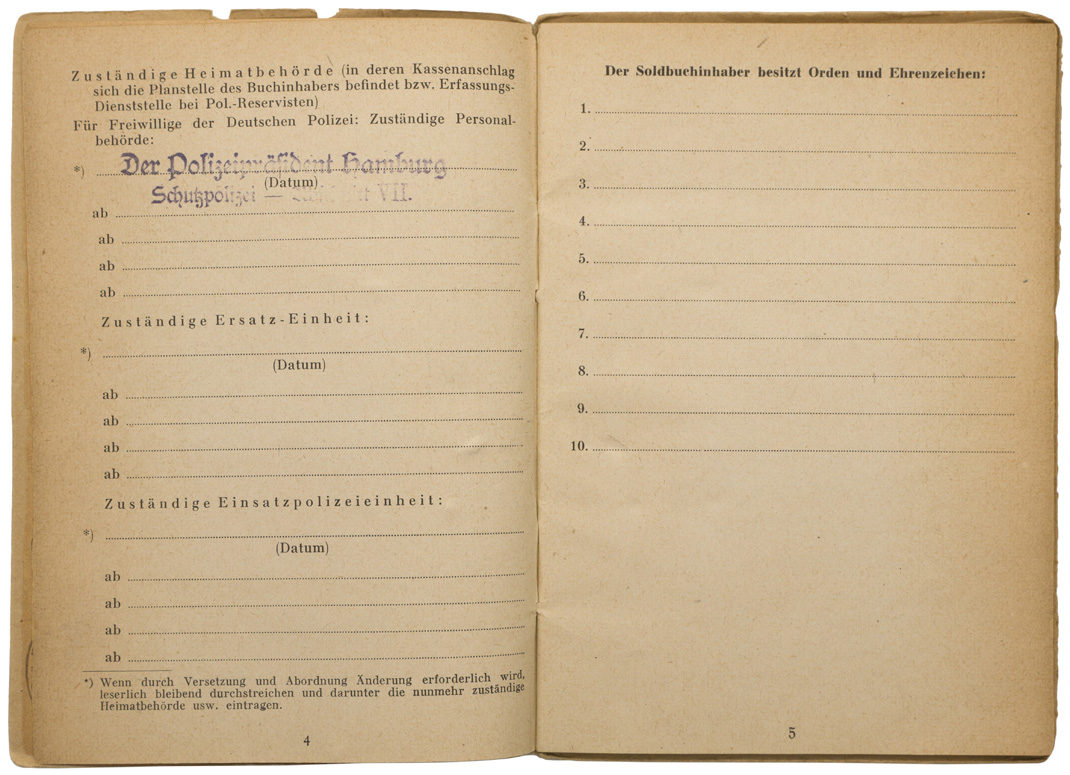 Zuständige Heimatbehörde (in deren Kassenanschlag
sich die Planstelle des Buchinhabers befindet bzw. Erfassungs-
Dienststelle bei Pol.-Reservisten)
Für Freiwillige der Deutschen Polizei: Zuständige Personal-
behörde:
*) Der Polizeipräsident Hamburg
(Datum)
Schutzpolizei — VII.
ab
ab
ab
ab
Zuständige Ersatz-Einheit:
*)
(Datum)
ab
ab
ab
ab
Zuständige Einsatzpolizeieinheit:
*)
(Datum)
ab
ab
ab
ab
*) Wenn durch Versetzung und Abordnung Änderung erforderlich wird,
leserlich bleibend durchstreichen und darunter die nunmehr zuständige
Heimatbehörde usw. eintragen.
4
Der Soldbuchinhaber besitzt Orden und Ehrenzeichen:
1.
2.
3.
4.
5.
6.
7.
8.
9.
10.
5